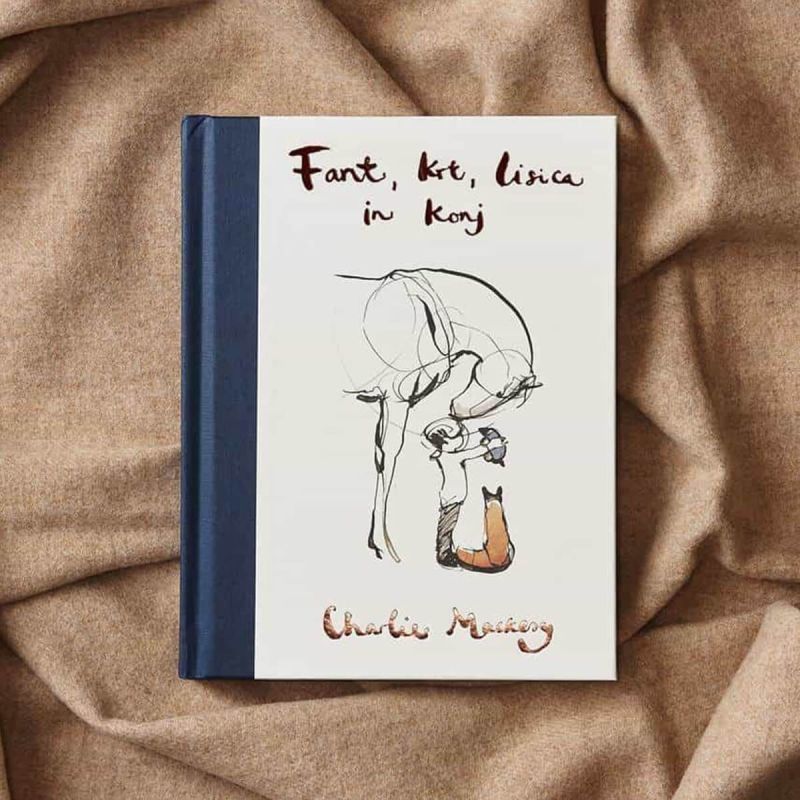 Fant, krt, lisica
in konj
Charlie Mackesy